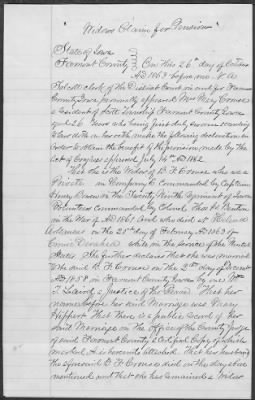 "Widows Claim for Pension"
State of Iowa
Fremont County } On this 26th day of October
AD 1863 before me
clerk of the District Court in and for Fremont
County Iowa personally appeared Mrs Mary Crouse
a resident of Township Fremont County Iowa
aged 26 Years who being first duly sworn according
to law doth on her oath make the following declaration in
order to obtain the benefit of the provision made by the
act of Congress approved July 14th AD 1862
That she is the Widow of B F Crouse who was a
Private in Company commanded by Captain
Emery in the Regiment of Iowa
Volunteers commanded by Colonel
in the War of AD 1861 and who died at Helena
Arkansas on the 25th day of February AD 1863 of
while in the service of the United
States She further declares that she was married
to the said B F Crouse on the 2nd day of
AD 1858 in Fremont County Iowa by one
a Justice of the Peace That her
name before her said Marriage was Mary
Hippert That there is a public record of her
said Marriage in the Office of the County Judge
of said Fremont County a Certified Copy of which
marked A is herewith attached That her husband
the aforesaid B F Crouse died on the day above
mentioned and that she has remained a Widow